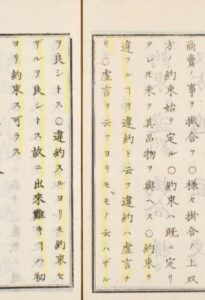 商賣ノ事ヲ掛合フ○樣々掛合ノ上双
方ノ約束始ヲ定ル○約束ハ既ニ定リ
シモ未タ其品物ヲ與ヘス○約束ヲ
違フルヿヲ違約ト云フ違約ハ虚言ナ
リ○虚言ヲ云フヨリモモノ云ハザル
ヲ良シトス○違約スルヨリモ約束セ
ザルヲ良シトス故ニ出來難キヿハ初
ヨリ約束ス可ラス